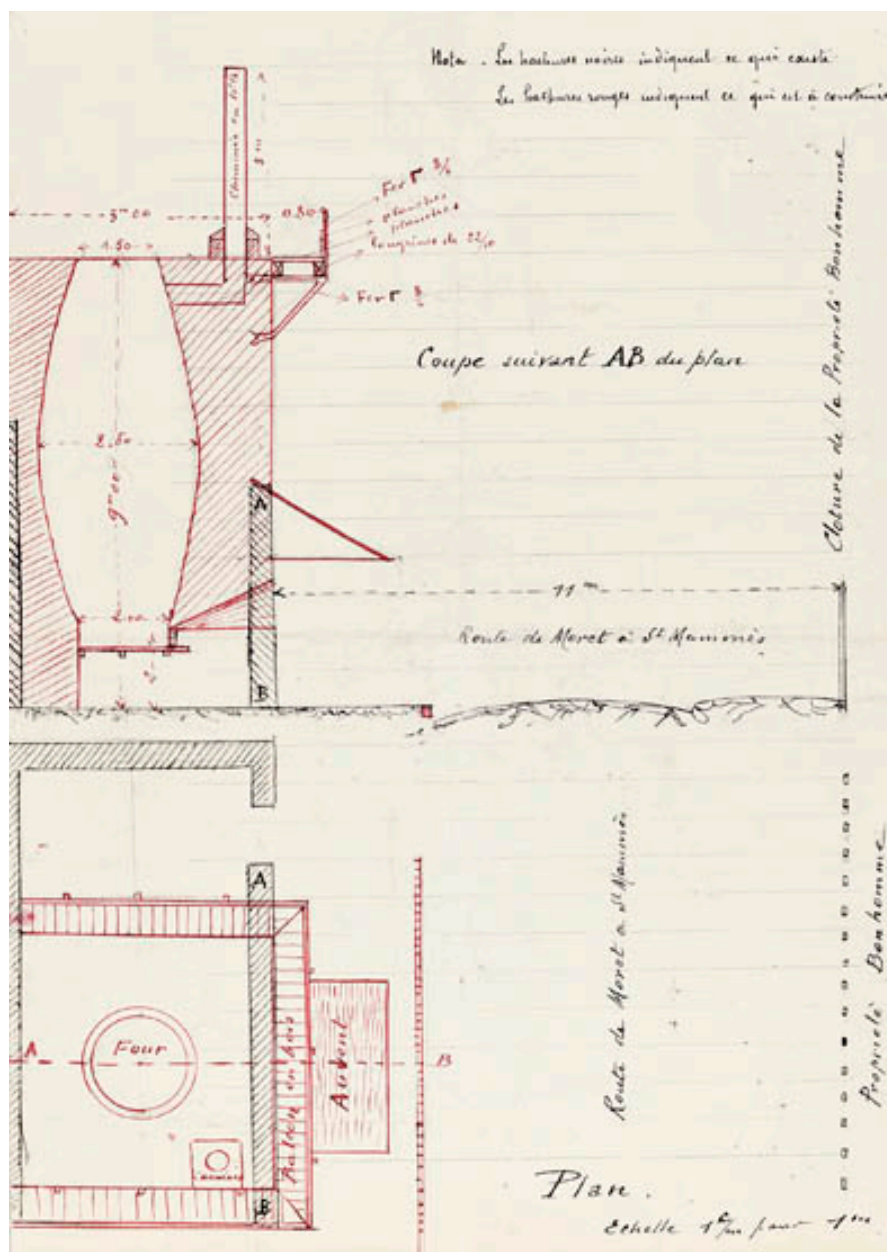 Nota. Les hachures noires indiquent ce qui existe
Les hachures rouges indiquent ce qui est à construire
Cheminée en tôle
3m
3m00
0.80
1.50
Fer
planches
planches
Longrines de 22/10
Fer
Coupe suivant AB du plan
Cloture de la Propriété Bonhomme
2.50
9m00
A
11m
Route de Moret à St Mammès
B
A
Route de Moret à St Mammès
Propriété Bonhomme
A
Four
Balcon en bois
Auvent
B
B
Plan.
Echelle 1c/m pour 1m